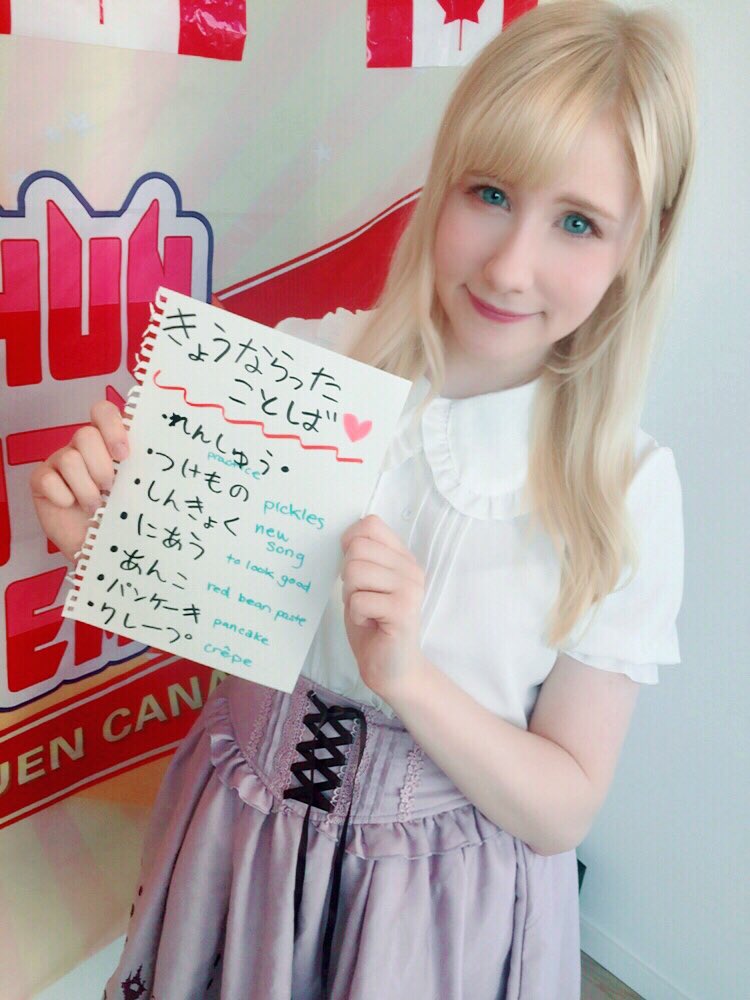 きょうならった
ことしば
・れんしゅう・
practice
・つけもの
pickles
・しんきょく
new
song
・にあう
to look good
・あんこ
red bean paste
・パンケーキ
pancake
・クレープ
crêpe
HUN
UEN CANA